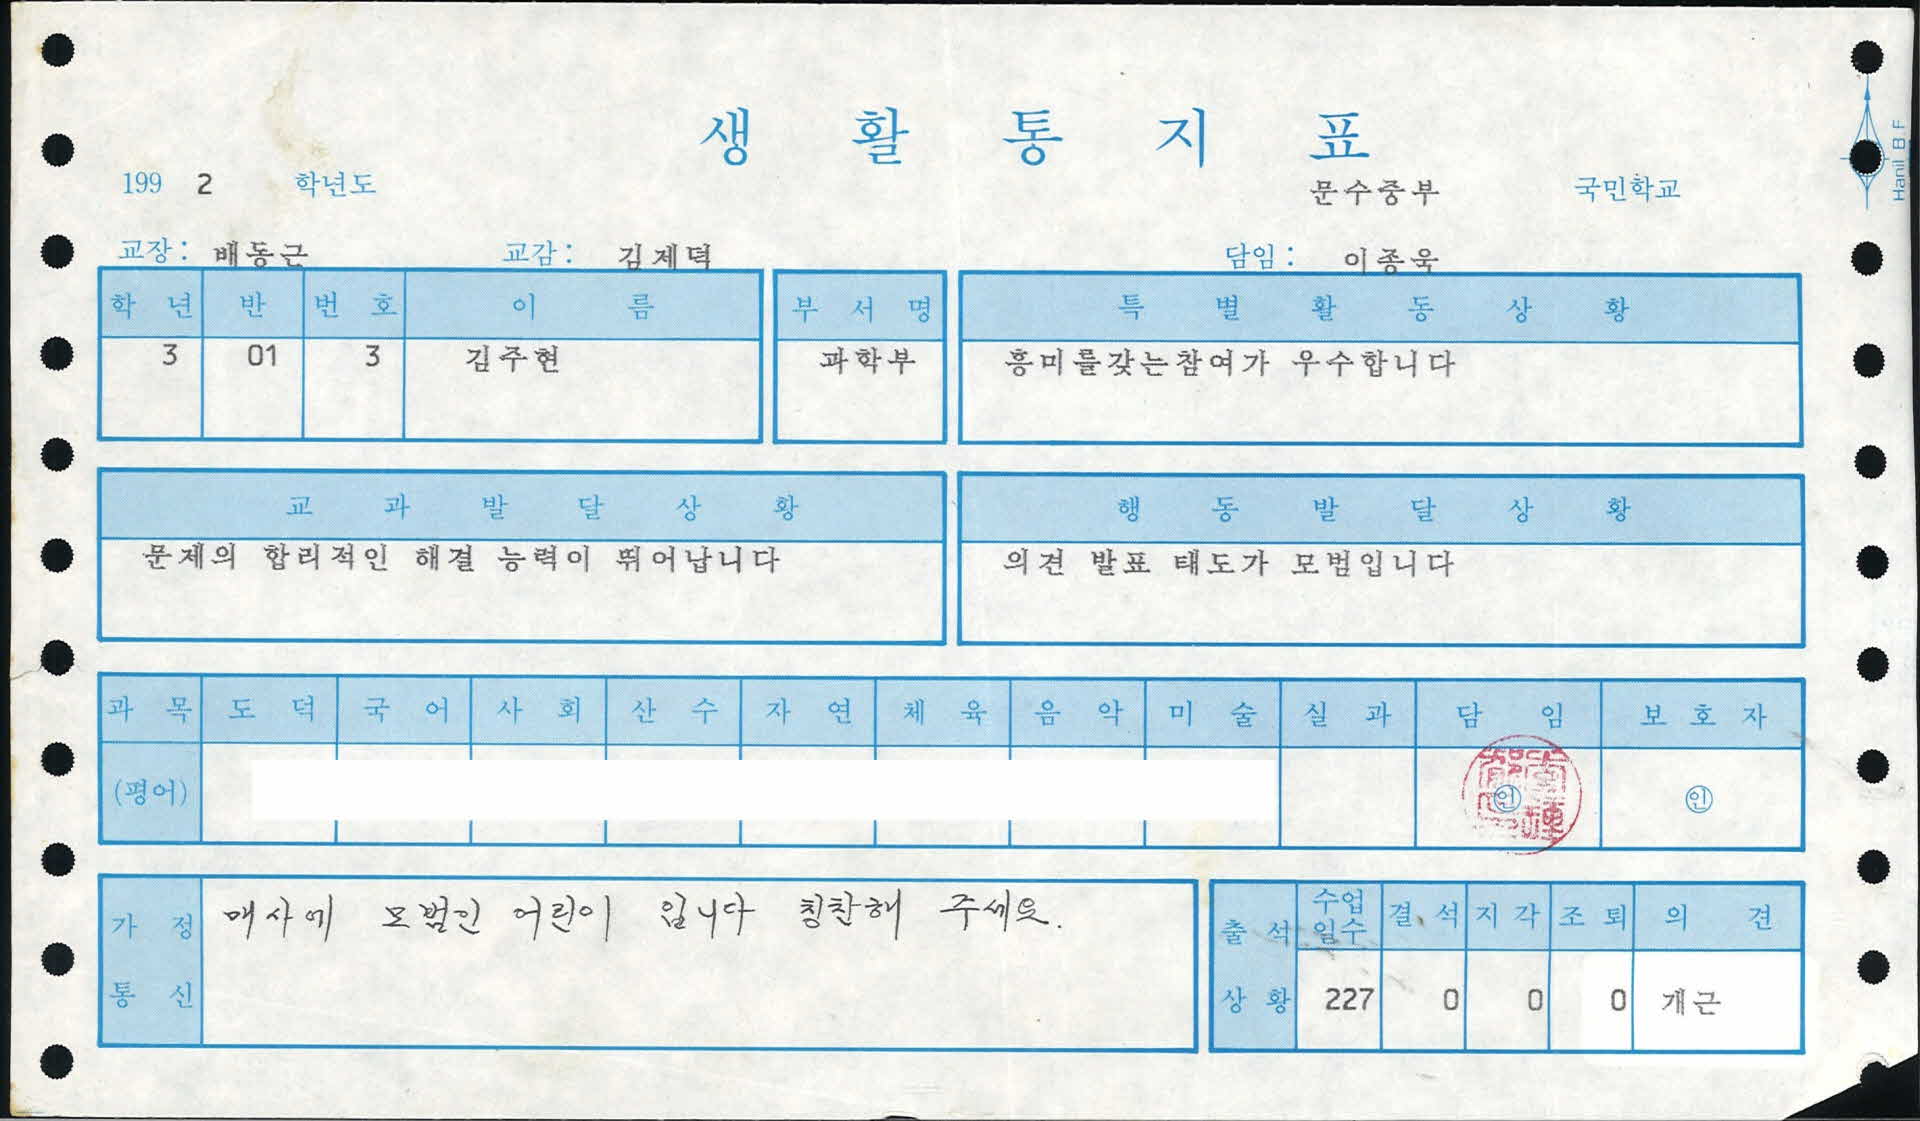 생 활 통 지 표
199 2 학년도
문수중부 국민학교
교장: 배동근 교감: 김제덕 담임: 이종욱
학 년 반 번 호 이 름 부 서 명 특 별 활 동 상 황
3 01 3 김주현 과학부 흥미를갖는참여가 우수합니다
교 과 발 달 상 황 행 동 발 달 상 황
문제의 합리적인 해결 능력이 뛰어납니다 의견 발표 태도가 모범입니다
과 목 도 덕 국 어 사 회 산 수 자 연 체 육 음 악 미 술 실 과 담 임 보 호 자
(평어) 인 인
가 정 통 신 매사에 모범인 어린이 입니다 칭찬해 주세요.
출 석 상 황 수업 일수 결 석 지 각 조 퇴 의 견
227 0 0 0 개근
Hanil B F